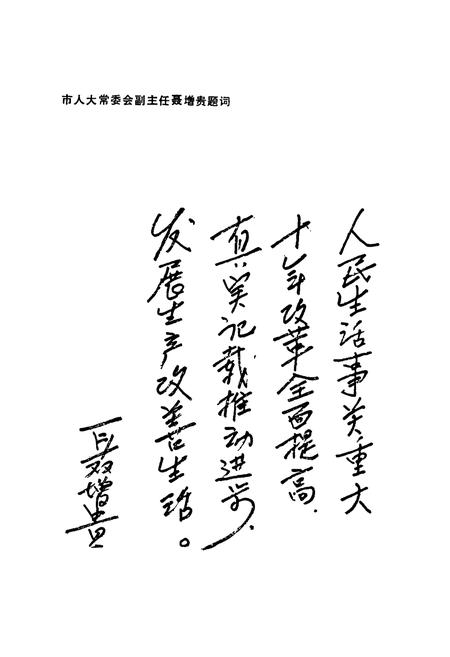 市人大常委会副主任聂增贵题词
人民生活事关重大
十年改革全面提高.
真实记载推动进步.
发展生产改善生活。
聂增贵